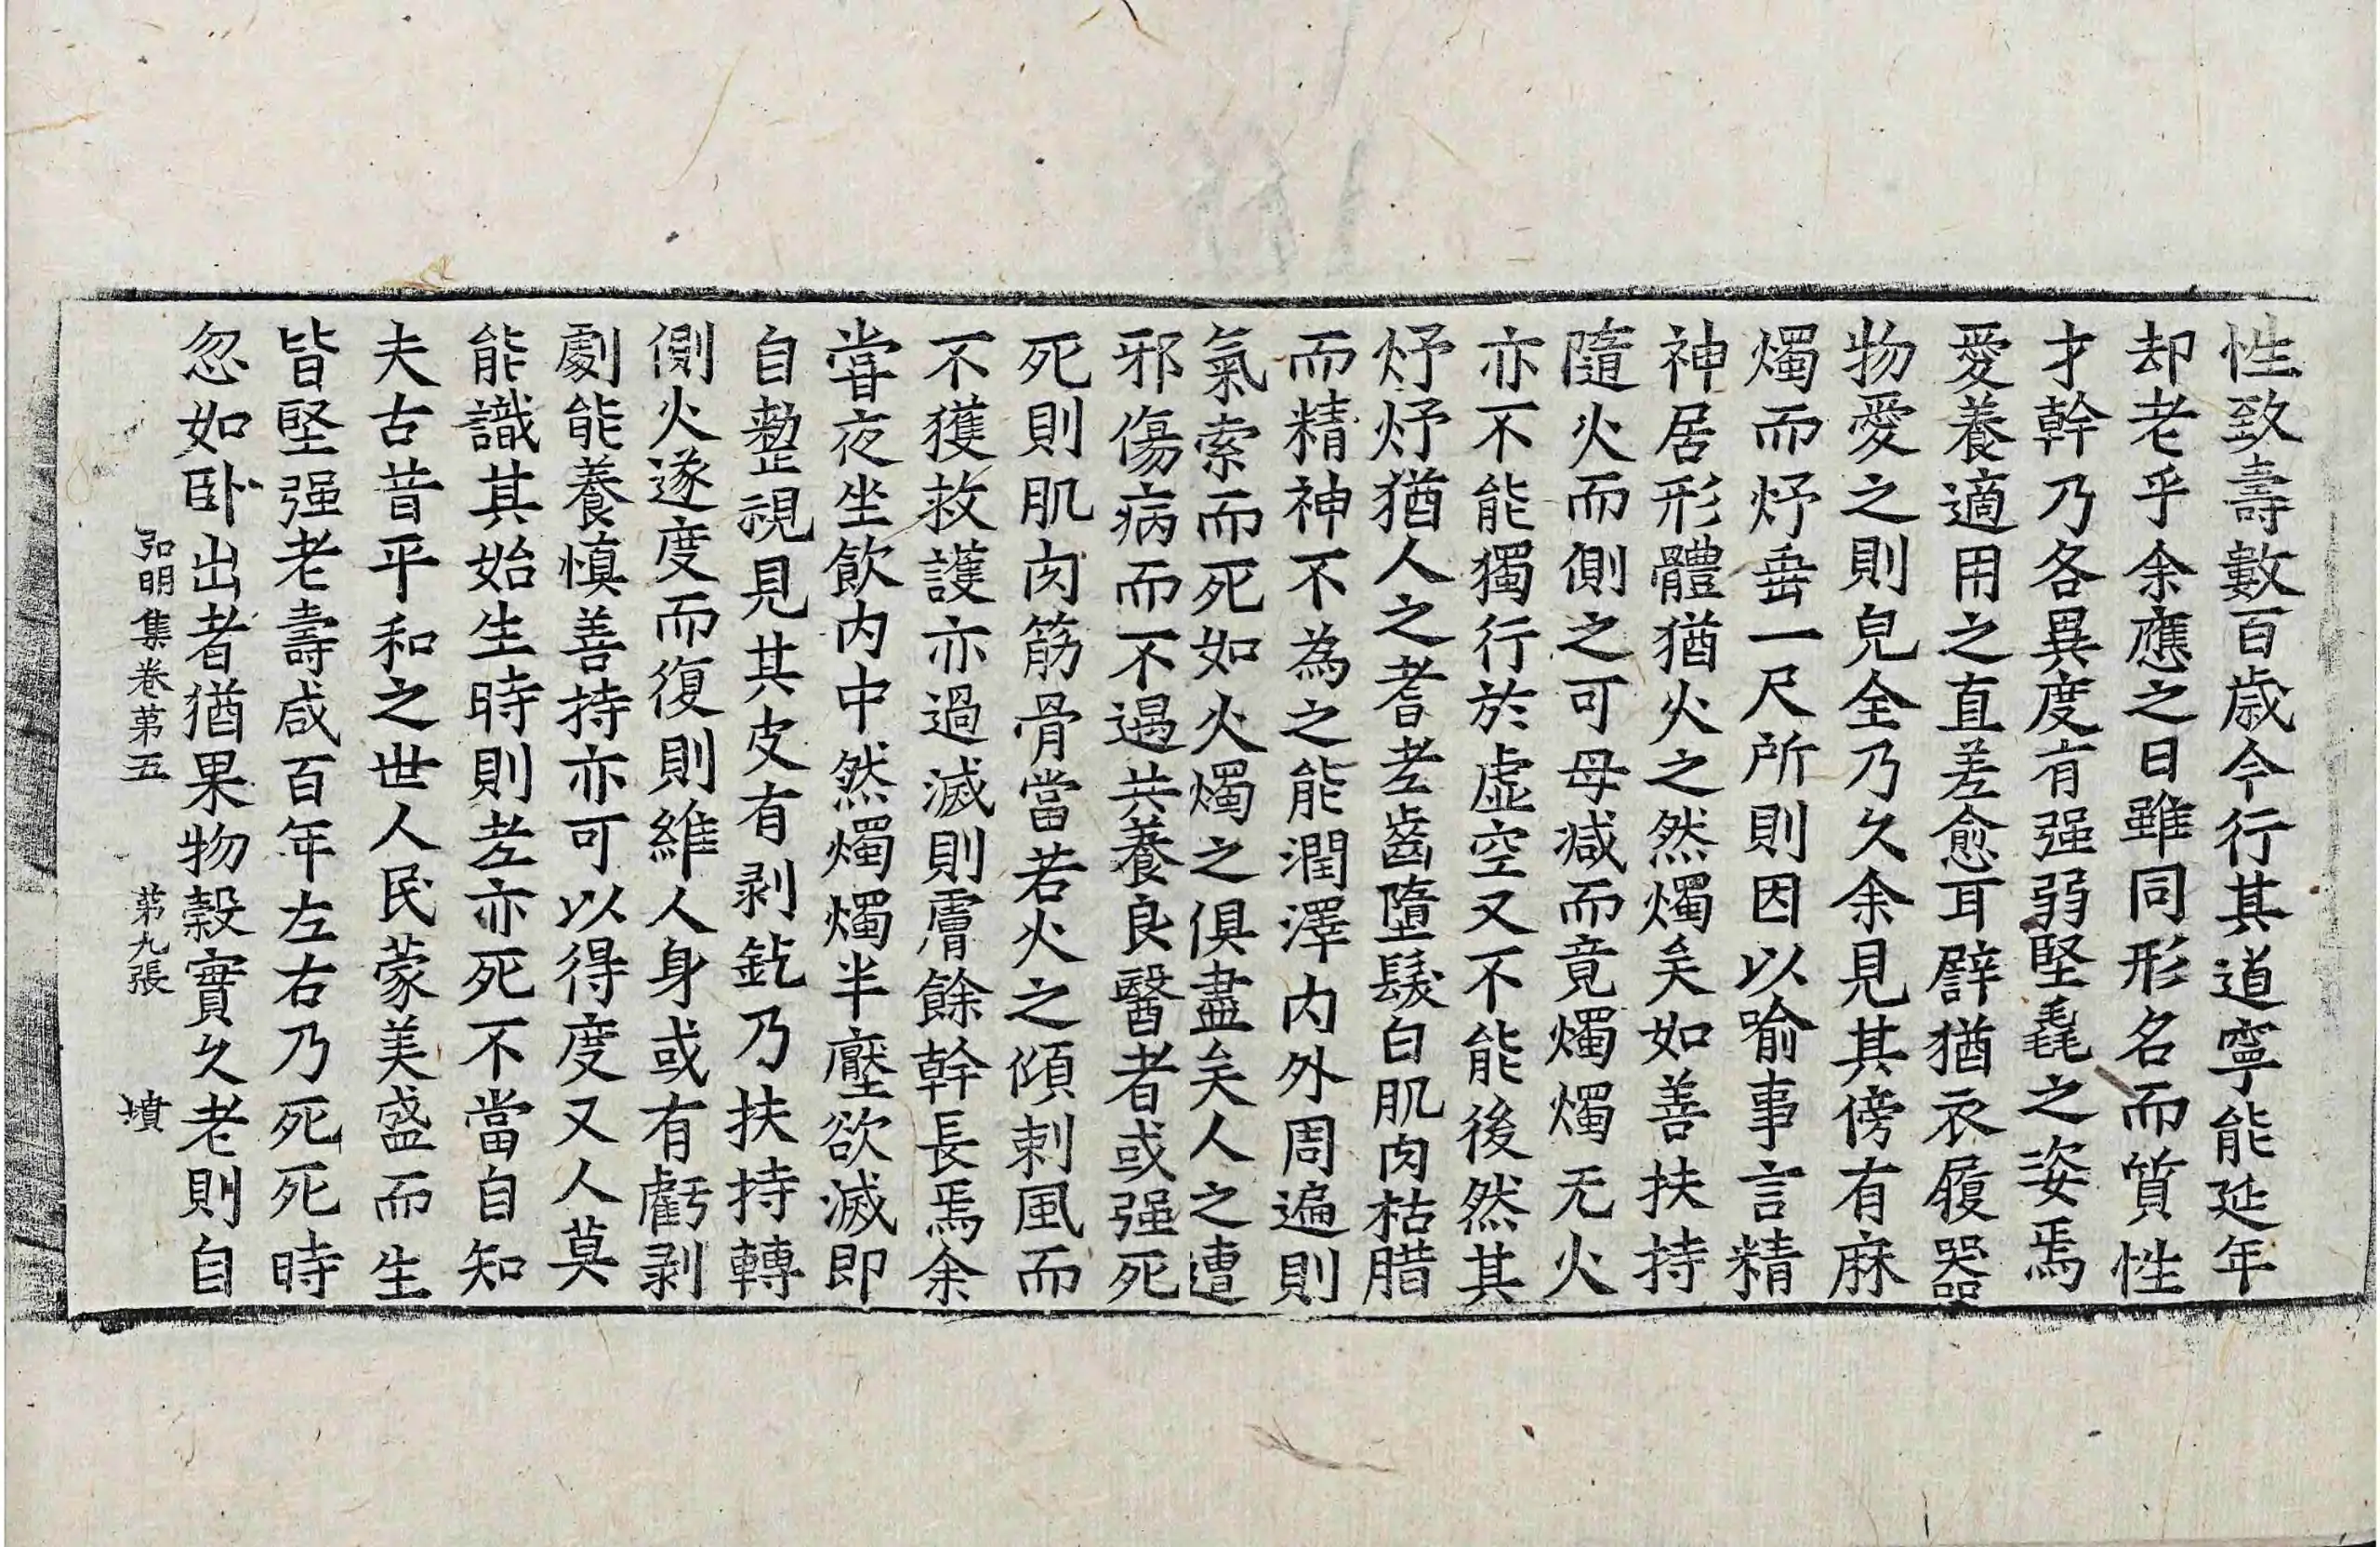 性致壽數百歲今行其道寧能延年
却老乎余應之曰雖同形名而質性
才幹乃各異度有强弱堅毳之姿焉
愛養適用之直差愈耳譬猶衣履器
物愛之則皃全乃久余見其傍有麻
燭而炧垂一尺所則因以喻事言精
神居形體猶火之然燭矣如善扶持
隨火而側之可毋減而竟燭燭无火
亦不能獨行於虛空又不能後然其
炧炧猶人之耆老齒墮髮白肌肉枯腊
而精神不為之能潤澤內外周遍則
氣索而死如火燭之俱盡矣人之遭
邪傷病而不遇共養良醫者或强死
死則肌肉筋骨當若火之傾刺風而
不獲救護亦過滅則膚餘幹長焉余
嘗夜坐飲內中然燭燭半壓欲滅即
自整視見其皮有剥釳乃扶持轉
側火遂度而復則維人身或有虧剥
劇能養慎善持亦可以得度又人莫
能識其始生時則老亦死不當自知
夫古昔平和之世人民蒙美盛而生
皆堅强老壽咸百年左右乃死死時
忽如卧出者猶果物穀實久老則自
弘明集卷第五　第九張　墳